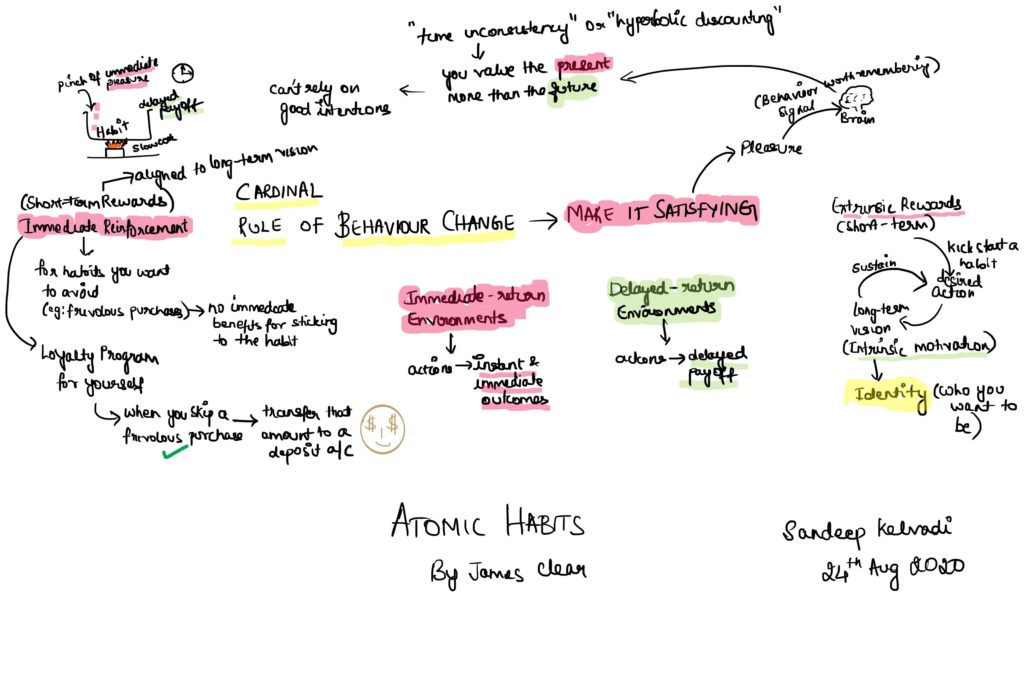 "time inconsistency" or "hyperbolic discounting"
you value the present
more than the future
can't rely on
good intentions
pinch of immediate
pleasure
delayed
payoff
Habit
slow cook
(Behavior
signal
worth-remembering)
Brain
Pleasure
aligned to long-term vision
(Short-term Rewards)
Immediate Reinforcement
for habits you want
to avoid
(eg: frivolous purchases)
no immediate
benefits for sticking
to the habit
Loyalty Program
for yourself
when you skip a
frivolous purchase
transfer that
amount to a
deposit a/c
$ $
CARDINAL
RULE OF BEHAVIOUR CHANGE
MAKE IT SATISFYING
Immediate-return
Environments
actions
instant &
immediate
outcomes
Delayed-return
Environments
actions
delayed
payoff
Extrinsic Rewards
(short-term)
kickstart a
habit
sustain
desired
Action
long-term
vision
(Intrinsic motivation)
Identity (who you
want to
be)
ATOMIC HABITS
By James Clear
Sandeep Kelvadi
24th Aug 2020